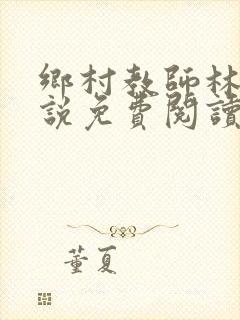 鄉村教師林
說免費閱讀
董夏